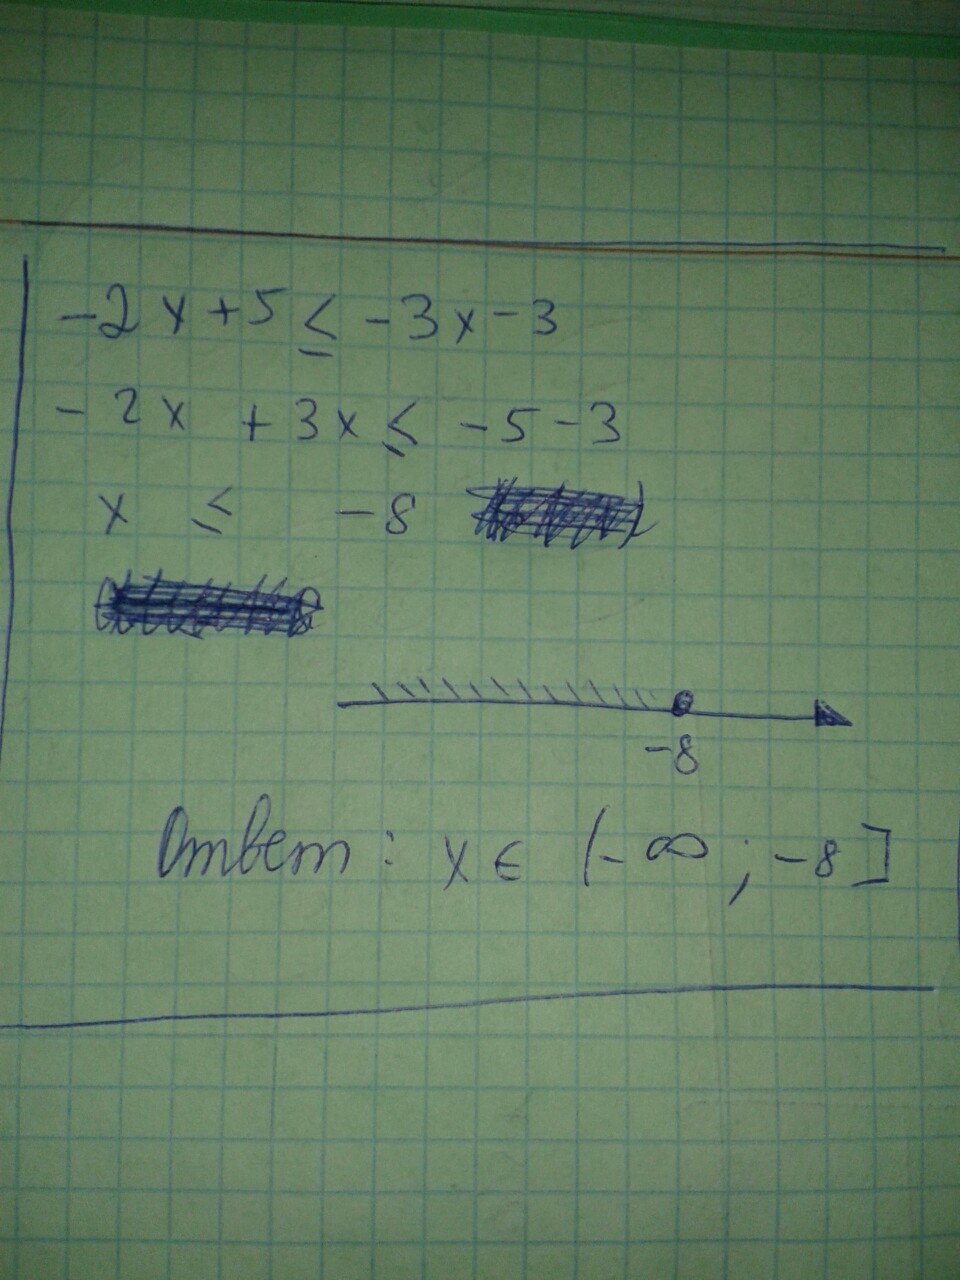 -2x+5 ≤ -3x-3
-2x +3x ≤ -5-3
x ≤ -8
-8
Ответ: x ∈ (-∞; -8]